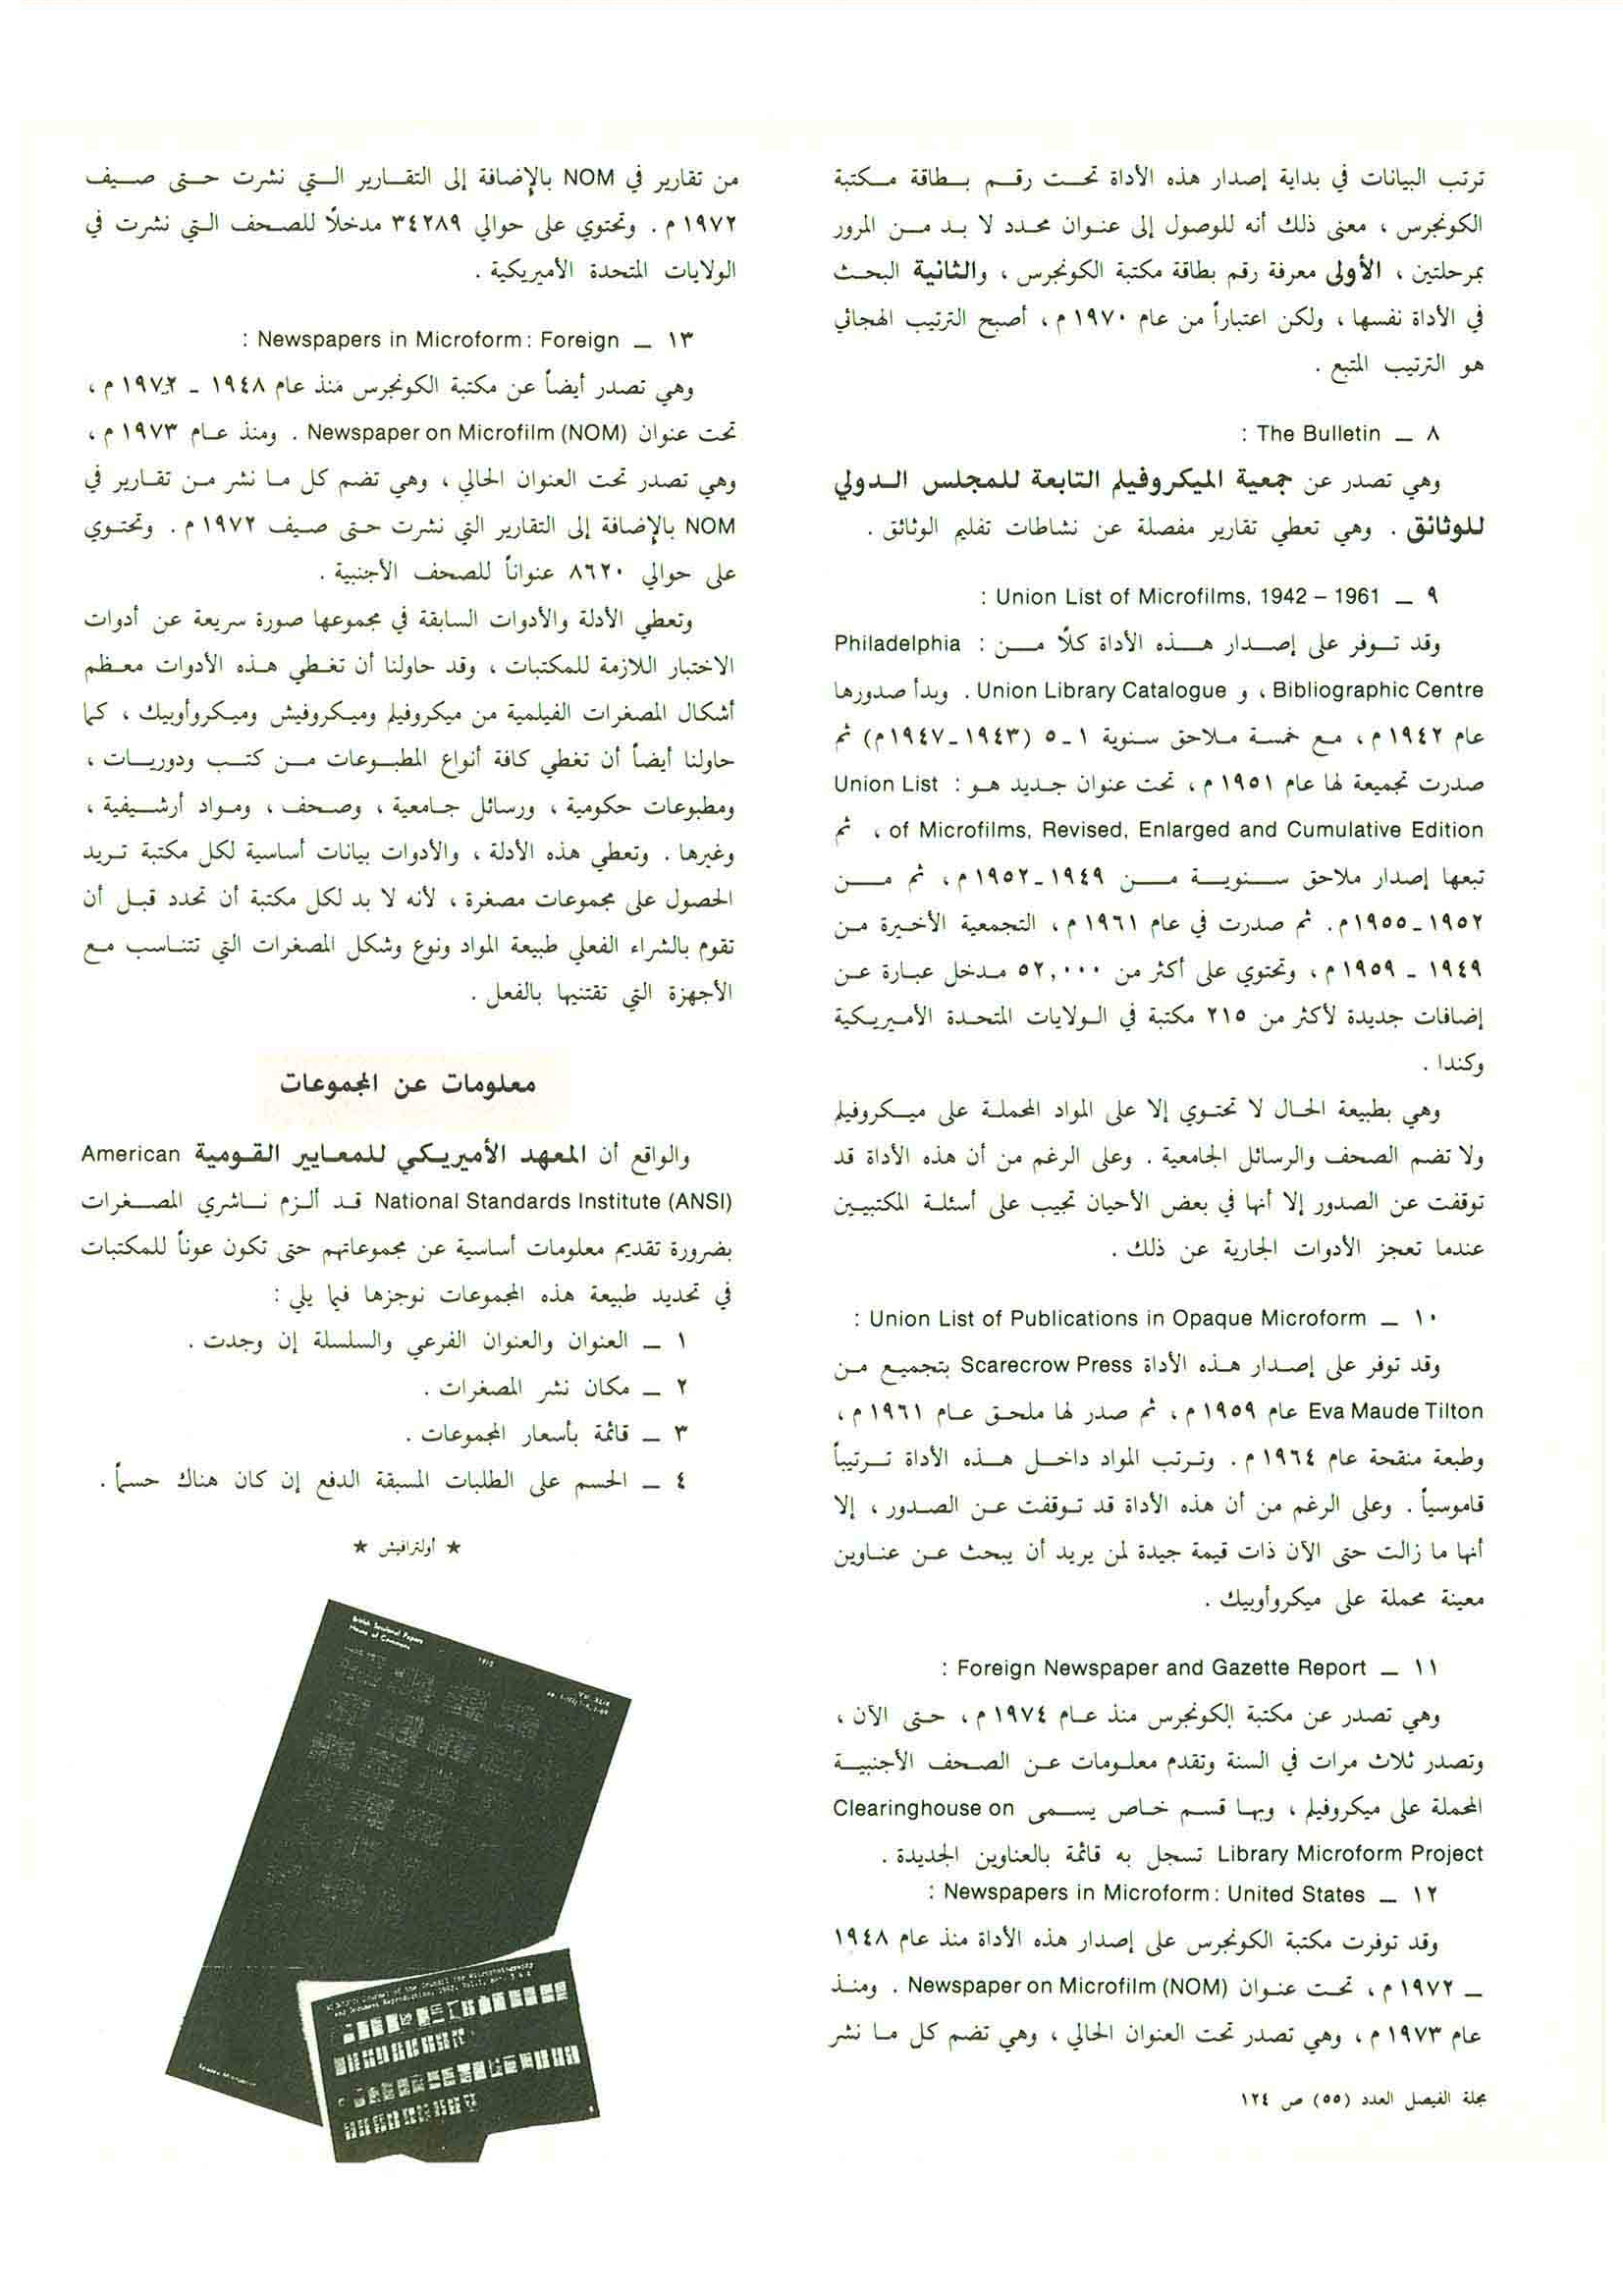 ترتب البيانات في بداية إصدار هذه الأداة تحت رقم بطاقة مكتبة
الكونجرس ، معنى ذلك أنه للوصول إلى عنوان محدد لا بد من المرور
بمرحلتين ، الأولى معرفة رقم بطاقة مكتبة الكونجرس ، والثانية البحث
في الأداة نفسها ، ولكن اعتباراً من عام ١٩٧٠ م ، أصبح الترتيب الهجائي
هو الترتيب المتبع .
٨ ــ The Bulletin :
وهي تصدر عن جمعية الميكروفيلم التابعة للمجلس الدولي
للوثائق . وهي تعطي تقارير مفصلة عن نشاطات تفليم الوثائق .
٩ ــ Union List of Microfilms, 1942 – 1961 :
وقد توفر على إصدار هذه الأداة كلاً من : Philadelphia
Bibliographic Centre ، و Union Library Catalogue . وبدأ صدورها
عام ١٩٤٢ م ، مع خمسة ملاحق سنوية ١ـ٥ (١٩٤٣ـ١٩٤٧م) ثم
صدرت تجميعة لها عام ١٩٥١ م ، تحت عنوان جديد هو : Union List
of Microfilms, Revised, Enlarged and Cumulative Edition ، ثم
تبعها إصدار ملاحق سنوية من ١٩٤٩ـ١٩٥٢ م ، ثم من
١٩٥٢ـ١٩٥٥م . ثم صدرت في عام ١٩٦١ م ، التجمعية الأخيرة من
١٩٤٩ ـ ١٩٥٩ م ، وتحتوي على أكثر من ٥٢,٠٠٠ مدخل عبارة عن
إضافات جديدة لأكثر من ٢١٥ مكتبة في الولايات المتحدة الأميريكية
وكندا .
وهي بطبيعة الحال لا تحتوي إلا على المواد المحملة على ميكروفيلم
ولا تضم الصحف والرسائل الجامعية . وعلى الرغم من أن هذه الأداة قد
توقفت عن الصدور إلا أنها في بعض الأحيان تجيب على أسئلة المكتبيين
عندما تعجز الأدوات الجارية عن ذلك .
١٠ ــ Union List of Publications in Opaque Microform :
وقد توفر على إصدار هذه الأداة Scarecrow Press بتجميع من
Eva Maude Tilton عام ١٩٥٩ م ، ثم صدر لها ملحق عام ١٩٦١ م ،
وطبعة منقحة عام ١٩٦٤ م . وترتب المواد داخل هذه الأداة ترتيباً
قاموسياً . وعلى الرغم من أن هذه الأداة قد توقفت عن الصدور ، إلا
أنها ما زالت حتى الآن ذات قيمة جيدة لمن يريد أن يبحث عن عناوين
معينة محملة على ميكروأوبيك .
١١ ــ Foreign Newspaper and Gazette Report :
وهي تصدر عن مكتبة الكونجرس منذ عام ١٩٧٤ م ، حتى الآن ،
وتصدر ثلاث مرات في السنة وتقدم معلومات عن الصحف الأجنبية
المحملة على ميكروفيلم ، وبها قسم خاص يسمى Clearinghouse on
Library Microform Project تسجل به قائمة بالعناوين الجديدة .
١٢ ــ Newspapers in Microform : United States :
وقد توفرت مكتبة الكونجرس على إصدار هذه الأداة منذ عام ١٩٤٨
ــ ١٩٧٢ م ، تحت عنوان Newspaper on Microfilm (NOM) . ومنذ
عام ١٩٧٣ م ، وهي تصدر تحت العنوان الحالي ، وهي تضم كل ما نشر
مجلة الفيصل العدد (٥٥) ص ١٢٤
من تقارير في NOM بالإضافة إلى التقارير التي نشرت حتى صيف
١٩٧٢ م . وتحتوي على حوالي ٣٤٢٨٩ مدخلاً للصحف التي نشرت في
الولايات المتحدة الأميريكية .
١٣ ــ Newspapers in Microform : Foreign :
وهي تصدر أيضاً عن مكتبة الكونجرس منذ عام ١٩٤٨ ـ ١٩٧٢ م ،
تحت عنوان Newspaper on Microfilm (NOM) . ومنذ عام ١٩٧٣ م ،
وهي تصدر تحت العنوان الحالي ، وهي تضم كل ما نشر من تقارير في
NOM بالإضافة إلى التقارير التي نشرت حتى صيف ١٩٧٢ م . وتحتوي
على حوالي ٨٦٢٠ عنواناً للصحف الأجنبية .
وتعطي الأدلة والأدوات السابقة في مجموعها صورة سريعة عن أدوات
الاختبار اللازمة للمكتبات ، وقد حاولنا أن تغطي هذه الأدوات معظم
أشكال المصغرات الفيلمية من ميكروفيلم وميكروفيش وميكروأوبيك ، كما
حاولنا أيضاً أن تغطي كافة أنواع المطبوعات من كتب ودوريات ،
ومطبوعات حكومية ، ورسائل جامعية ، وصحف ، ومواد أرشيفية ،
وغيرها . وتعطي هذه الأدلة ، والأدوات بيانات أساسية لكل مكتبة تريد
الحصول على مجموعات مصغرة ، لأنه لا بد لكل مكتبة أن تحدد قبل أن
تقوم بالشراء الفعلي طبيعة المواد ونوع وشكل المصغرات التي تتناسب مع
الأجهزة التي تقتنيها بالفعل .
معلومات عن المجموعات
والواقع أن المعهد الأميريكي للمعايير القومية American
National Standards Institute (ANSI) قد ألزم ناشري المصغرات
بضرورة تقديم معلومات أساسية عن مجموعاتهم حتى تكون عوناً للمكتبات
في تحديد طبيعة هذه المجموعات نوجزها فيما يلي :
١ ــ العنوان والعنوان الفرعي والسلسلة إن وجدت .
٢ ــ مكان نشر المصغرات .
٣ ــ قائمة بأسعار المجموعات .
٤ ــ الحسم على الطلبات المسبقة الدفع إن كان هناك حسماً .
★ أولترافيش ★
British Sessional Papers
House of Commons
1910